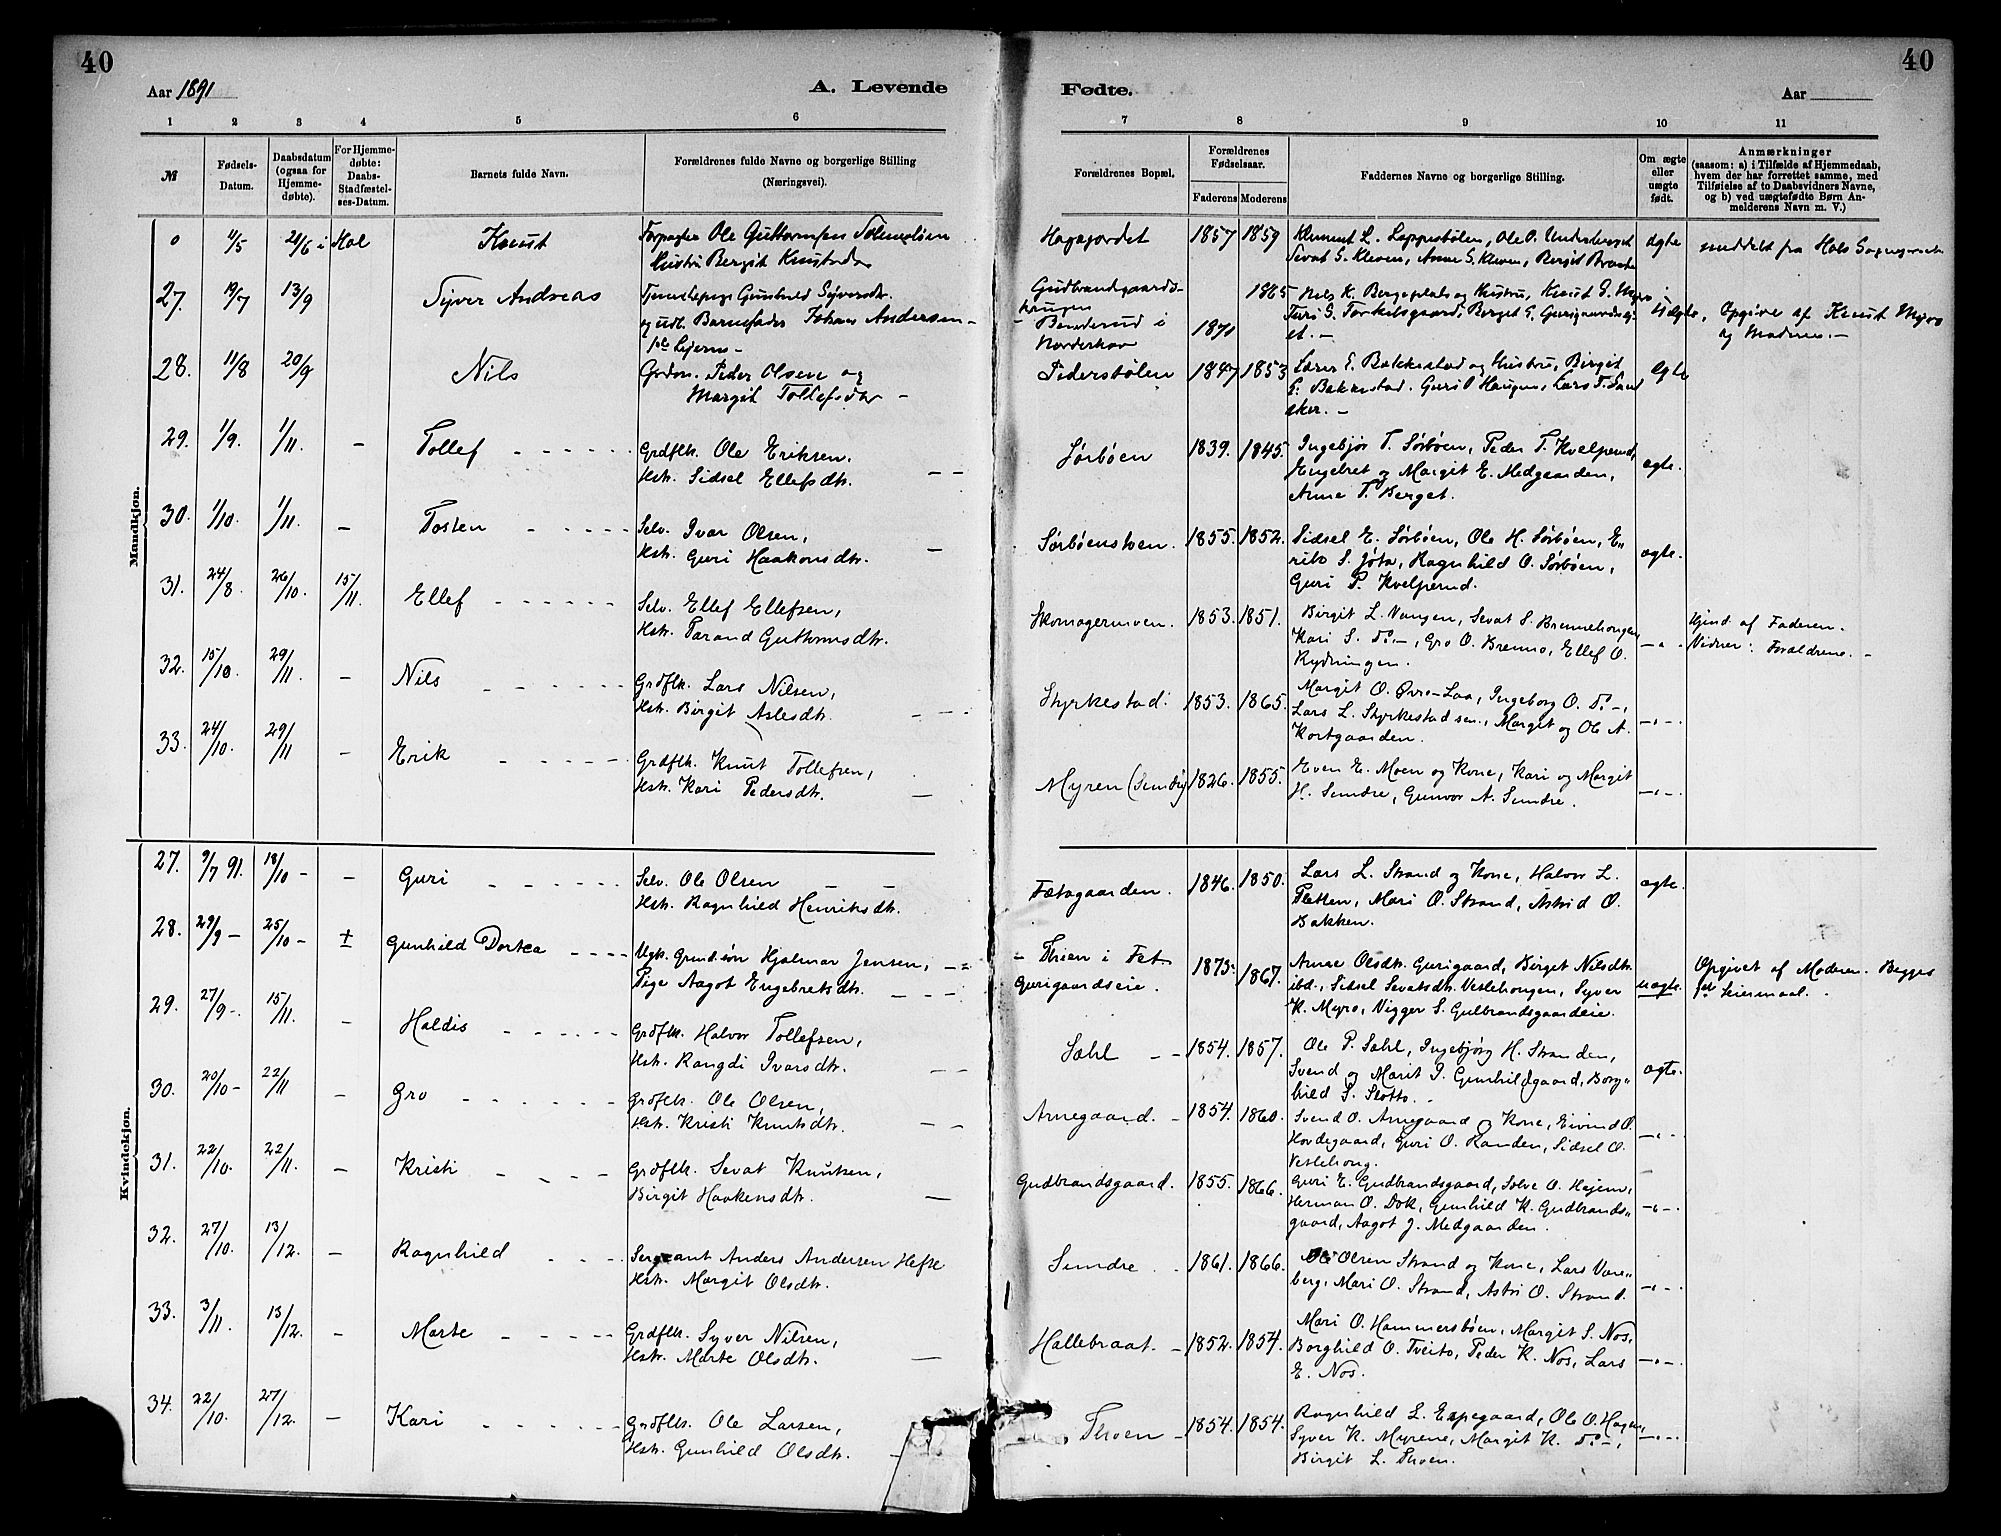 40
40
Aar 1891
A. Levende
Fødte.
Aar
1 2 3 4 5 6 7 8 9 10 11
№
Fødsels-
Datum.
Daabsdatum
(ogsaa for
Hjemme-
døbte).
For Hjemme-
døbte:
Daabs-
Stadfæstel-
ses-Datum.
Barnets fulde Navn.
Forældrenes fulde Navne og borgerlige Stilling
(Næringsvei).
Forældrenes Bopæl.
Forældrenes
Fødselsaar.
Faderens Moderens
Faddernes Navne og borgerlige Stilling.
Om ægte
eller
uægte
født.
Anmærkninger
(saasom: a) i Tilfælde af Hjemmedaab,
hvem der har forrettet samme, med
Tilføielse af to Daabsvidners Navne,
og b) ved uægtefødte Børn An-
melderens Navn m. V.)
Mandkjøn.
0 11/5 21/6 i Hol Knut
Ole Guttormsen
Hustru Bergit Knutsdr
Hagajordet 1857 1859
Klemmet L. Lappestølen, Ole O.
Sevat G. Kleven, Anne G. Kleven, Bergit
ægte
meddelt fra Hols
27. 19/7 13/9 Syver Andreas
Gunhild Syversdr.
og udl. Barnefader Johan Andersen -
Gudbrandsgaards-
krugen
Benderud i
Norderhov
1871 1865
Nils K. Bergeplads og Hustru, Knut S. Myro
Turi S. Torkilsgaard, Berget G.
et. -
Uægte,
Opgive af Knut Myro
og Moderen. -
28. 11/8 20/9 Nils
Peder Olsen og
Margit Tollefsdr -
Pederstølen 1847 1853
E. Bakkestad og Hustru, Birgit
E. Bakkestad. Guri O Haugen, Lars T. Sand
aker. -
Egte
29. 1/9. 1/11. - Tollef
Grdflk. Ole Eriksen.
Hst. Sidsel Ellefsdtr.
Sørbøen 1839. 1845.
Ingebjør T. Sørbøen, Peder T. Kvelprud,
Engebret og Margit E. Medgaarden,
Anne T. Berget.
ægte.
30. 1/10. 1/11. - Tosten
Selv. Ivar Olsen,
Hst. Guri Haakonsdtr.
Sørbøenstoen. 1855. 1852.
Sidsel E. Sørbøen, Ole H. Sørbøen, E"
rik S. Jota, Ragnhild O. Sørbøen,
Guri P. Kvelprud.
ægte.
31. 24/8. 26/10. 15/11. Ellef
Selv. Ellef Ellefsen,
Hst. Tarand Guttormsdtr.
Skomagermoen. 1853. 1851.
Birgit L. Vangen, Sevat S. Brennehougen
Kari S. do -, Gro O. Brenno, Ellef O.
Rydningen.
-"-
Hjmd. af Faderen.
Vidner: Forældrene. -
32. 15/10. 29/11. - Nils
Grdflk. Lars Nilsen,
Hst. Birgit Aslesdtr.
Styrkestad. 1853. 1865.
Margit O. Øvre-Laa, Ingeborg O. do -,
Lars L. Styrkestad sen., Margit og Ole A.
Kortgaarden.
-"-
33. 24/10. 29/11 - Erik
Grdflk. Knut Tollefsen,
Hst. Kari Pedersdtr.
Myren (Sundre) 1826. 1855.
Even E. Moen og Kone, Kari og Margit
H. Sundre, Gunvor A. Sundre.
-"-
Kvindekjøn.
27. 9/7 91. 18/10 - - Guri
Selv. Ole Olsen
Hst. Ragnhild Henriksdtr.
Fetagaarden. 1846. 1850.
Lars L. Strand og Kone, Halvor L.
Sletten, Mari O. Strand, Astrid O.
Bakken.
ægte.
28. 29/9 - 25/10 - + Gunhild Dortea
Ugk. Hjalmar Jensen,
Pige Aagot Engebretsdtr.
- Thoen i Fet
Gurigaardseie.
1873. 1867.
Anne Olsdtr. Gurigaard, Birget Nilsdtr.
ibd., Sidsel Sevatsdtr. Veslehougen, Syver
K. Myro, Vigger S. Gulbrandsgaardeie.
uægte.
Opgivet af Moderen. Begges
1ste Leiermaal.
29. 27/9 -. 15/11. - Haldis
Grdflk. Halvor Tollefsen,
Hst. Rangdi Ivarsdtr.
Sahl 1854. 1857.
Ole P. Sahl, Ingebjørg H. Stranden,
Svend og Marit I. Gunhildgaard, Borg"
hild S. Slotto. -
ægte.
30. 20/10 - 22/11 - Gro
Grdflk. Ole Olsen,
Hst. Kristi Knutsdtr.
Arnegaard. - 1854. 1860.
Svend O. Arnegaard og Kone, Eivind O.
Hovdegaard, Guri O. Randen, Sidsel O.
Veslehoug.
-"-
31. 22/10. 22/11. - Kristi
Grdflk. Sevat Knutsen,
Birgit Haakensdtr.
Gudbrandsgaard. 1855. 1866.
Guri E. Gudbrandsgaard, Solve O. Hajem,
Herman O. Dok, Gunhild K. Gudbrands"
gaard, Aagot J. Medgaarden.
-"-
32. 27/10. 13/12. - Ragnhild
Sergeant Anders Andersen Hefte
Hst. Margit Olsdtr.
Sundre 1861. 1866.
Ole Olsen Strand og Kone, Lars Vare"
berg, Mari O. Strand, Astri O. Strand.
-"-
33. 3/11. 13/12. - Marte
Grdflk. Syver Nilsen,
Hst. Marte Olsdtr.
Hallebraat. - 1852. 1854.
Mari O. Hammersbøen, Margit S. Nos,
Borghild O. Tveito, Peder K. Nos, Lars
E. Nos.
-"-
34. 22/10. 27/12. - Kari
Grdflk. Ole Larsen,
Hst. Gunhild Olsdtr.
Thoen - 1854. 1854.
Ragnhild L. Espegaard, Ole O. Hagen,
Syver K. Myrene, Margit K. do -,
Birgit L. Thoen.
-"-